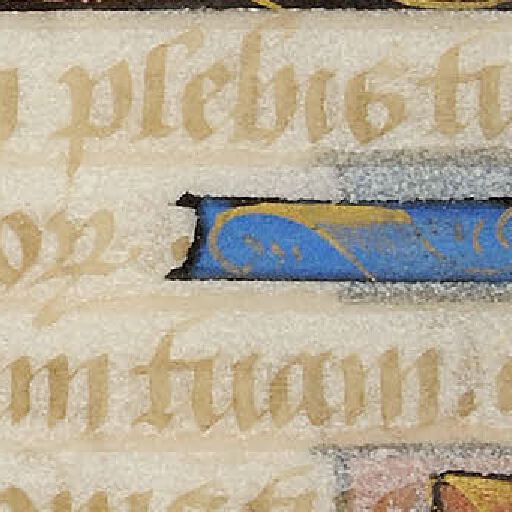 plebis tu
oꝝ.
m tuam.